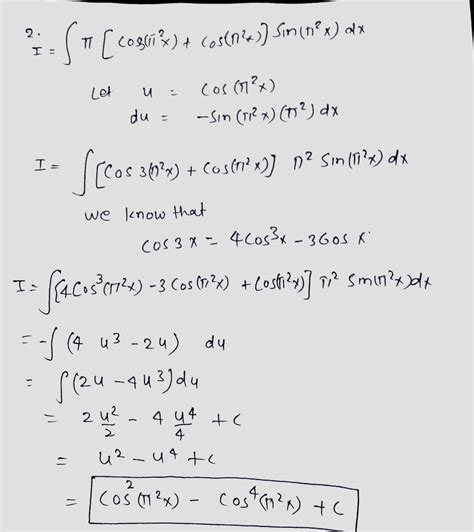 2.
I = ∫ π [cos(π²x) + cos(π²x)] sin(π²x) dx
Let u = cos(π²x)
du = -sin(π²x)(π²) dx
I = ∫ [cos 3(π²x) + cos(π²x)] π² sin(π²x) dx
we know that
cos 3x = 4cos³x - 3cos x
I = ∫ [4cos³(π²x) - 3cos(π²x) + cos(π²x)] π² sin(π²x) dx
= -∫ (4 u³ - 2u) du
= ∫ (2u - 4u³) du
= 2 u²/2 - 4 u⁴/4 + c
= u² - u⁴ + c
= cos²(π²x) - cos⁴(π²x) + c